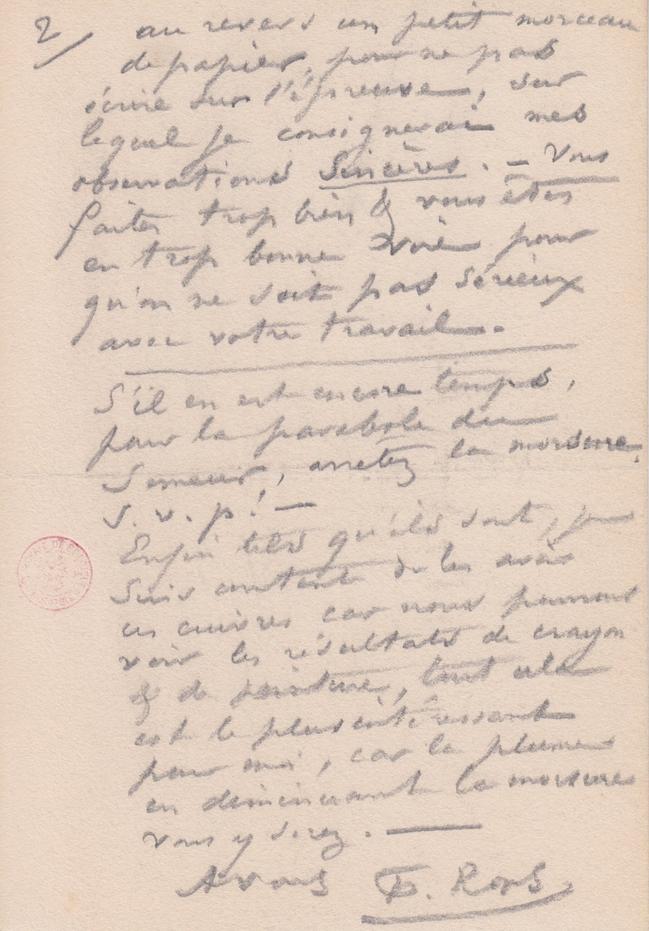 2/ au revers un petit morceau
de papier, pour ne pas
écrire sur l'épreuve, sur
lequel je consignerai mes
observations Sincères. — Vous
faites trop bien & vous êtes
en trop bonne voie pour
qu'on ne soit pas sérieux
avec votre travail.
S'il en est encore temps,
pour la parabole du
Semeur, arretez la morsure.
S. v. p! —
Enfin tels qu'ils sont, je
suis content de les avoir
ces cuivres car nous pouvons
voir les résultats de crayon
& de peinture, tout cela
est le plus intéressant
pour moi, car la plume
en diminuant la morsure
vous y serez. —
A vous F. Rops